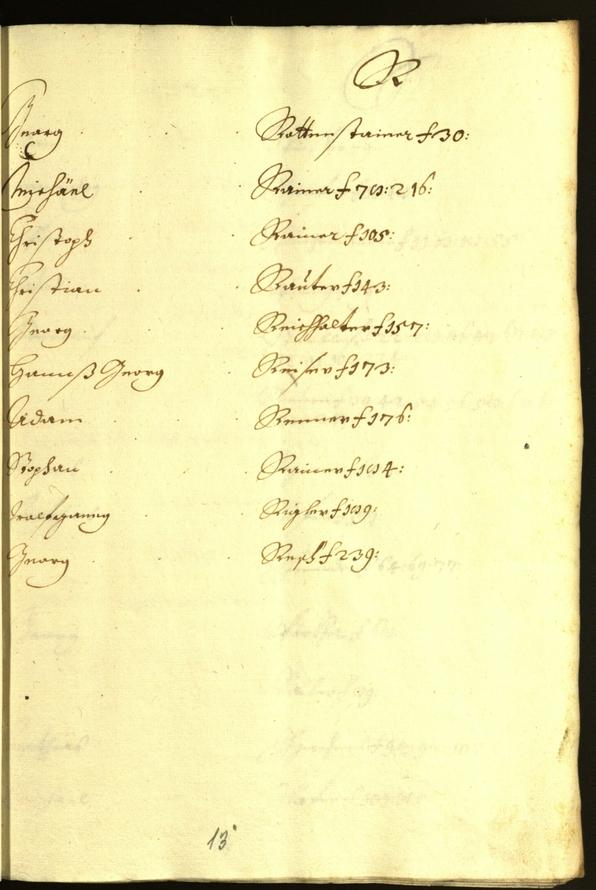 R
Georg Rottenstainer f 30:
Michäel Rainer f 70: 216:
Christoph Rainer f 105:
Christian Rauter f 143:
Georg Reichhalter f 157:
Hannß Georg Reiser f 173:
Adam Renner f 176:
Stephan Rainer f
Wolfganng Rigler f
Georg f 239:
13